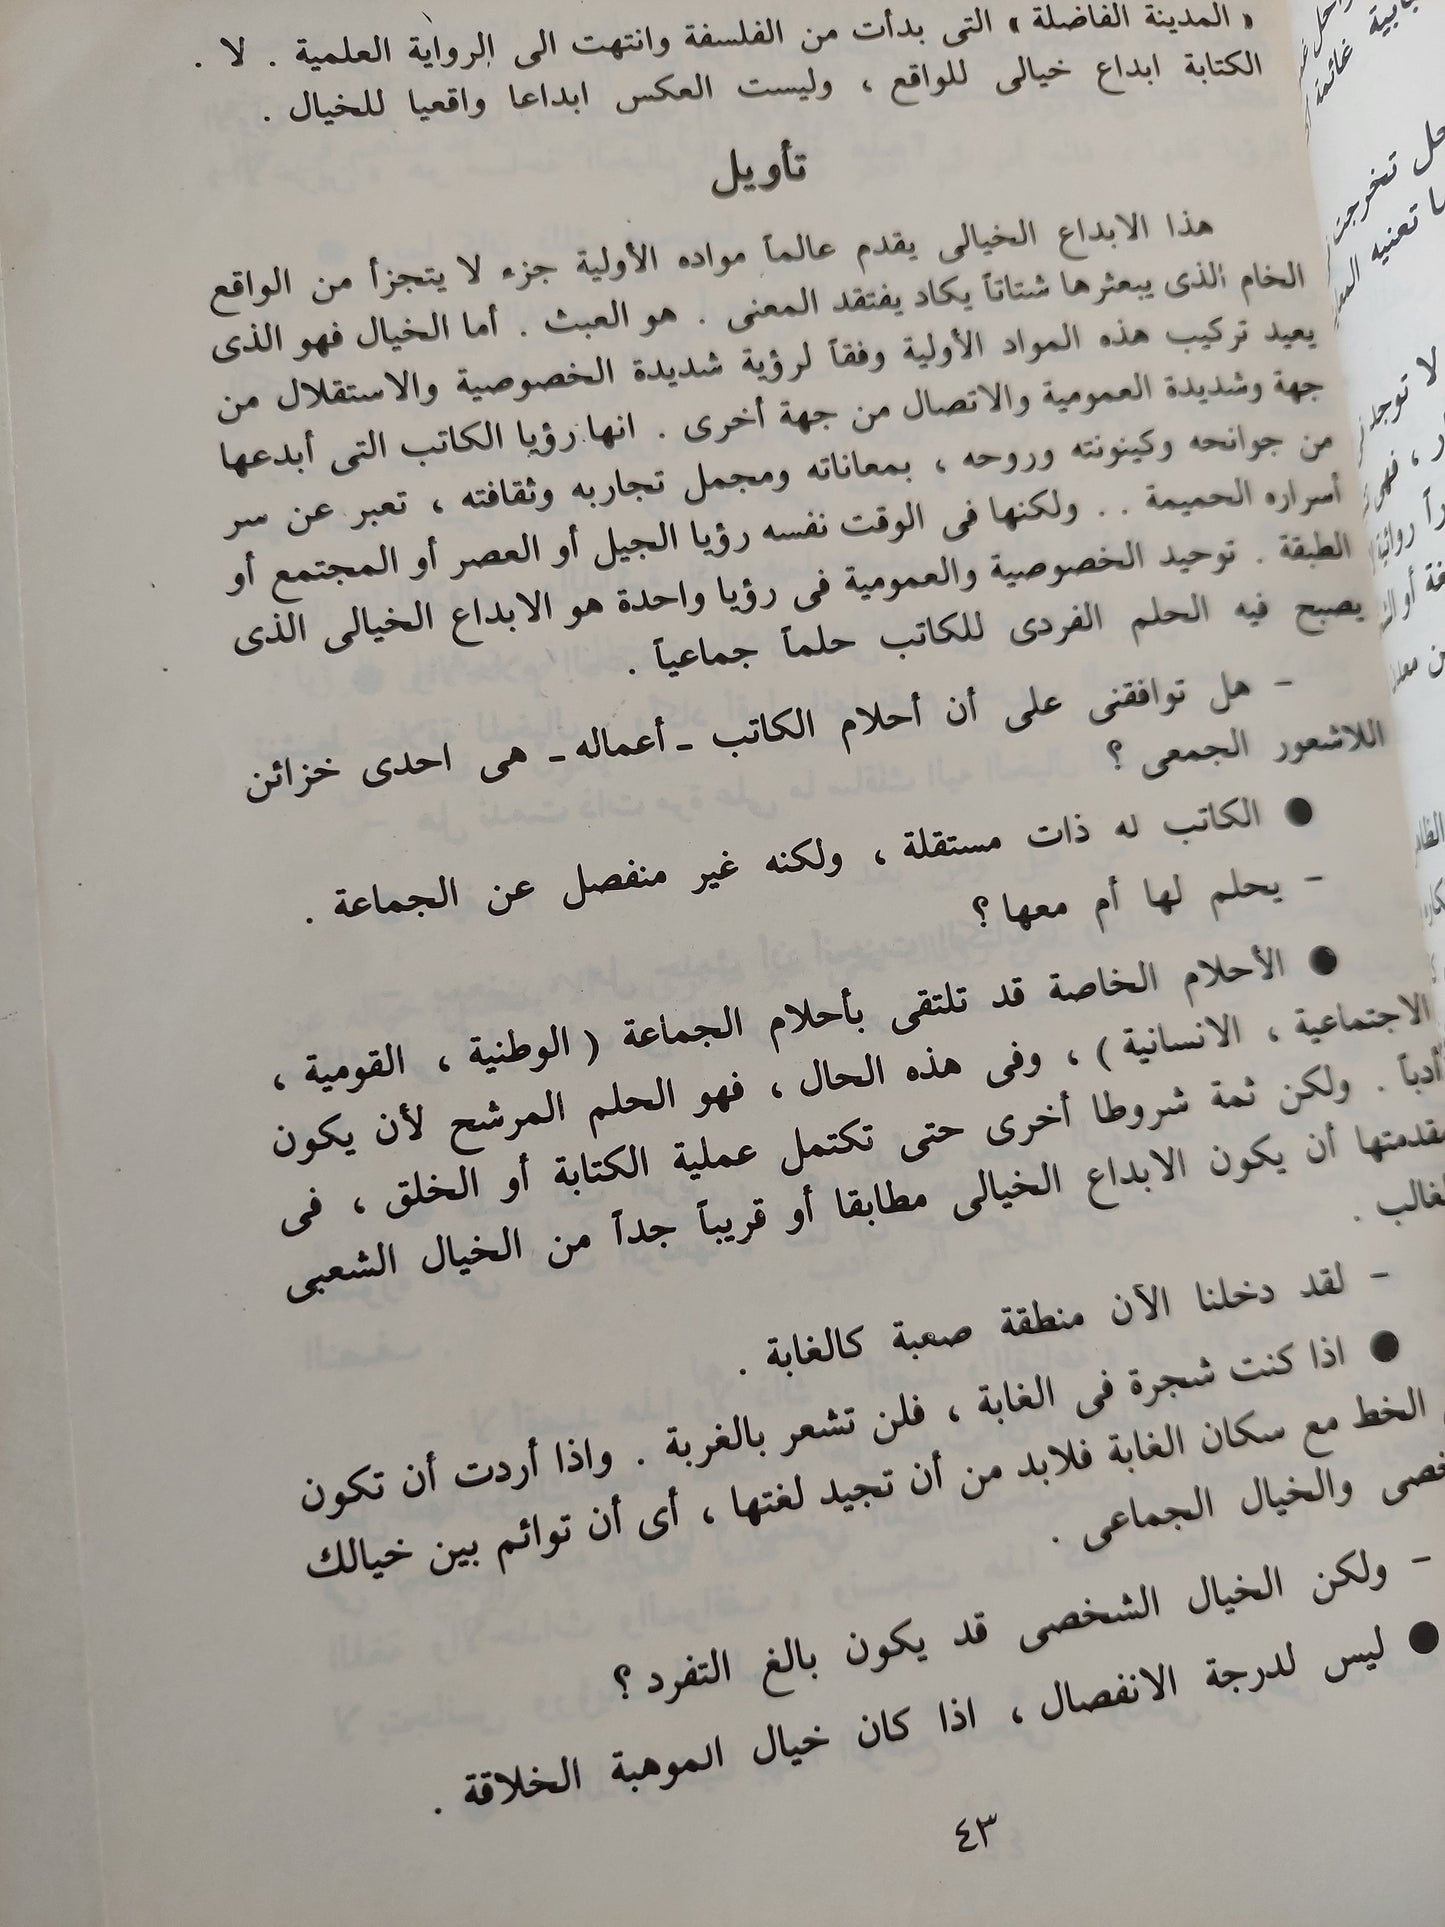 « المدينة الفاضلة » التى بدأت من الفلسفة وانتهت الى الرواية العلمية . لا .
الكتابة ابداع خيالى للواقع ، وليست العكس ابداعا واقعيا للخيال .
تأويل
هذا الابداع الخيالى يقدم عالماً مواده الأولية جزء لا يتجزأ من الواقع
الخام الذى يبعثرها شتاتاً يكاد يفتقد المعنى . هو العبث . أما الخيال فهو الذى
يعيد تركيب هذه المواد الأولية وفقاً لرؤية شديدة الخصوصية والاستقلال من
جهة وشديدة العمومية والاتصال من جهة أخرى . انها رؤيا الكاتب التى أبدعها
من جوانحه وكينونته وروحه ، بمعاناته ومجمل تجاربه وثقافته ، تعبر عن سر
أسراره الحميمة . . ولكنها فى الوقت نفسه رؤيا الجيل أو العصر أو المجتمع أو
الطبقة . توحيد الخصوصية والعمومية فى رؤيا واحدة هو الابداع الخيالى الذى
يصبح فيه الحلم الفردى للكاتب حلماً جماعياً .
– هل توافقنى على أن أحلام الكاتب ـ أعماله ـ هى احدى خزائن
اللاشعور الجمعى ؟
● الكاتب له ذات مستقلة ، ولكنه غير منفصل عن الجماعة .
– يحلم لها أم معها ؟
● الأحلام الخاصة قد تلتقى بأحلام الجماعة ( الوطنية ، القومية ،
الاجتماعية ، الانسانية ) ، وفى هذه الحال ، فهو الحلم المرشح لأن يكون
أدباً . ولكن ثمة شروطا أخرى حتى تكتمل عملية الكتابة أو الخلق ، فى
مقدمتها أن يكون الابداع الخيالى مطابقا أو قريباً جداً من الخيال الشعبى
الغالب .
– لقد دخلنا الآن منطقة صعبة كالغابة .
● اذا كنت شجرة فى الغابة ، فلن تشعر بالغربة . واذا أردت أن تكون
الخط مع سكان الغابة فلابد من أن تجيد لغتها ، أى أن توائم بين خيالك
والخيال الجماعى .
– ولكن الخيال الشخصى قد يكون بالغ التفرد ؟
● ليس لدرجة الانفصال ، اذا كان خيال الموهبة الخلاقة .
٤٣